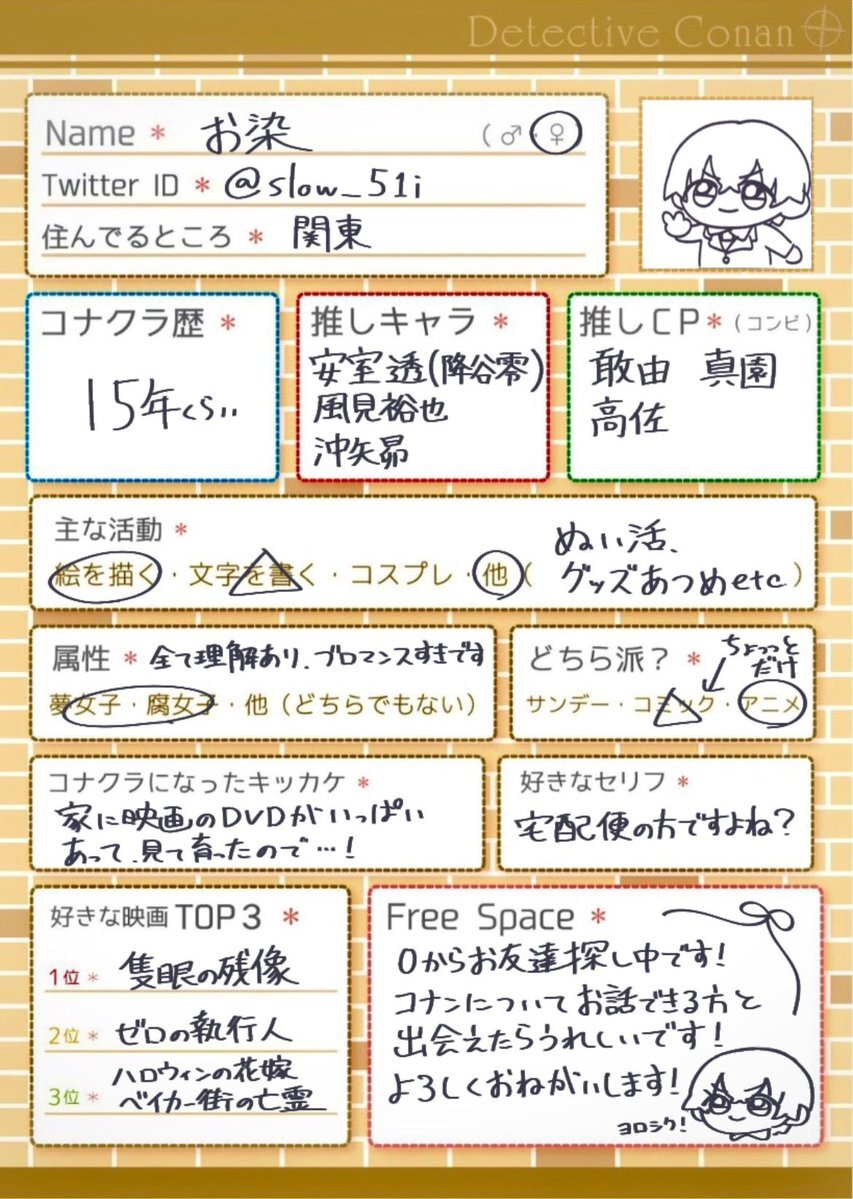 Detective Conan
Name * お染 (♂・♀)
Twitter ID * @slow_51i
住んでるところ * 関東
コナクラ歴 *
15年くらい
推しキャラ *
安室透(降谷零)
風見裕也
沖矢昴
推しCP* (コンビ)
敢由 真園
高佐
主な活動 *
絵を描く・文字を書く・コスプレ・他(ぬい活、
グッズあつめetc)
属性 * 全て理解あり、ブロマンスすきです
夢女子・腐女子・他(どちらでもない)
どちら派? * ちょっと
だけ
サンデー・コミック・アニメ
コナクラになったキッカケ *
家に映画のDVDがいっぱい
あって、見て育ったので…!
好きなセリフ *
宅配便の方ですよね?
好きな映画 TOP3 *
1位 * 隻眼の残像
2位 * ゼロの執行人
3位 * ハロウィンの花嫁
ベイカー街の亡霊
Free Space *
0からお友達探し中です!
コナンについてお話できる方と
出会えたらうれしいです!
よろしくおねがいします!
ヨロシク!